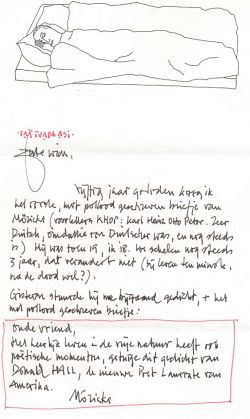 vijftig jaar geleden kreeg ik
het eerste, met potlood geschreven briefje van
Möricke (voorletters KHOP: Karl Heinz Otto Peter. Zeer
Duits, omdat hij een Duitser was, en nog steeds
is) Hij was toen 19, ik 18. We schelen nog steeds
jaar, dat verandert niet (bij leven tenminste,
na de dood wel?).
Gisteren stuurde hij me gedicht, + het
met potlood geschreven briefje:
oude vriend,
Het heerlijk leven in de vrije natuur heeft ook
poëtische momenten, getuige dit gedicht van
Donald HALL, de nieuwe Poet Laureate van
Amerika.
Möricke